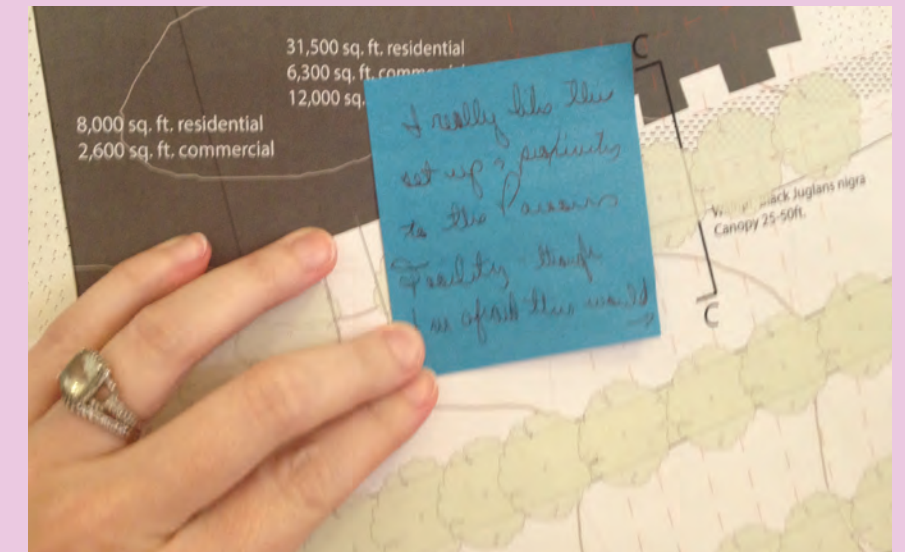 31,500 sq. ft. residential
6,300 sq. ft.
12,000 sq.
8,000 sq. ft. residential
2,600 sq. ft. commercial
C
I really like this
set up & proximity
to the Parsons
Facility - though
I'm afraid this would
Juglans nigra
Canopy 25-50ft.
C